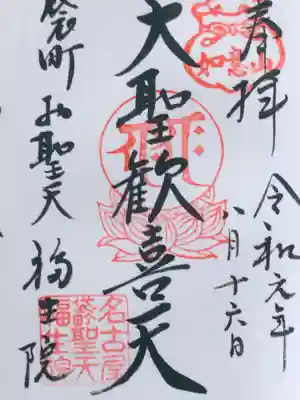 奉拝
如意山
令和元年
八月十六日
大聖歡喜天
袋町 お聖天 福生院
名古屋
袋町聖天
福生院